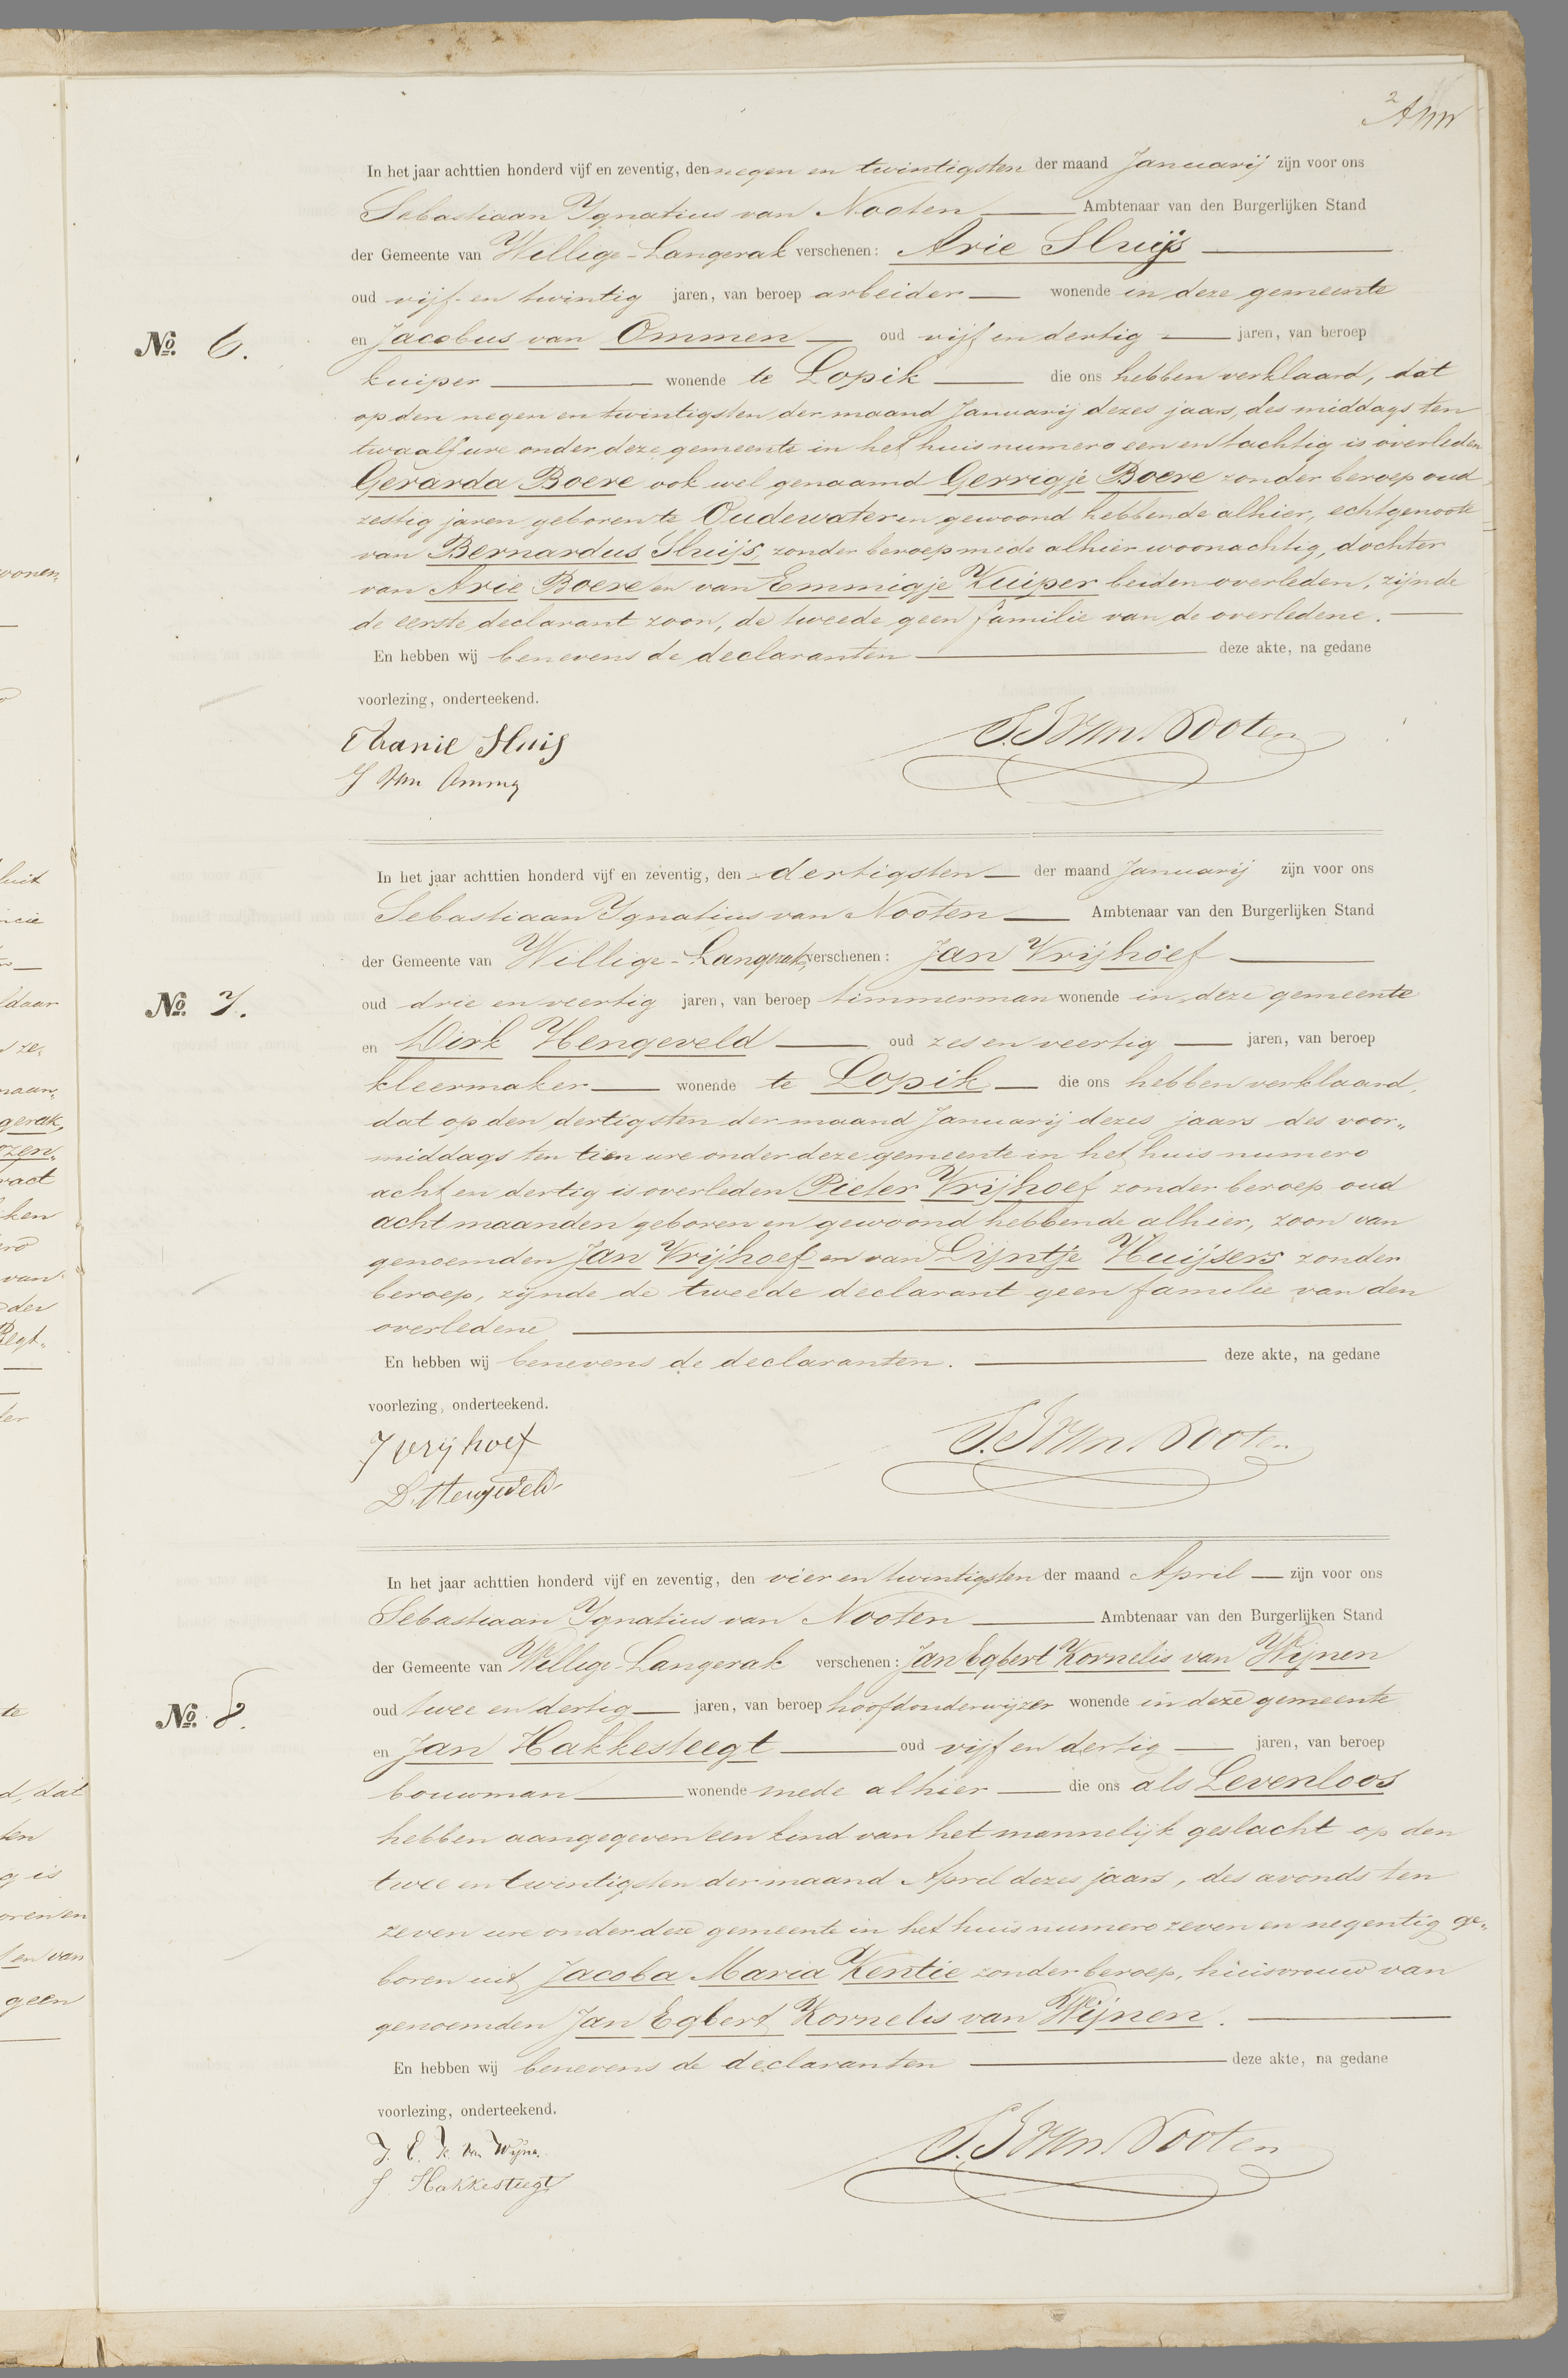 In het jaar achttien honderd vijf en zeventig, den negen en twintigsten der maand Januarij zijn voor ons
Sebastiaan Ignatius van Nooten — Ambtenaar van den Burgerlijken Stand
der Gemeente van Willige-Langerak verschenen: Arie Sluijs —
oud vijf-en twintig jaren, van beroep arbeider — wonende in deze gemeente
No. 6.
en Jacobus van Ommen — oud vijf en dertig — jaren, van beroep
kuiper — wonende te Lopik — die ons hebben verklaard, dat
op den negen en twintigsten der maand Januarij dezes jaars, des middags ten
twaalf ure onder deze gemeente in het huis numero een en tachtig is overleden
Gerarda Boere ook wel genaamd Gerrigje Boere zonder beroep oud
zestig jaren geboren te Oudewater en gewoond hebbende alhier, echtgenoote
van Bernardus Sluijs, zonder beroep mede alhier woonachtig, dochter
van Arie Boere en van Emmigje Kuiper beiden overleden, zijnde
de eerste declarant zoon, de tweede geen familie van de overledene. —
En hebben wij benevens de declaranten — deze akte, na gedane
voorlezing, onderteekend.
Sluis
S.I van Nooten
J van
In het jaar achttien honderd vijf en zeventig, den dertigsten — der maand Januarij zijn voor ons
Sebastiaan Ignatius van Nooten — Ambtenaar van den Burgerlijken Stand
der Gemeente van Willige-Langerak verschenen: Jan Vrijhoef —
No. 7.
oud drie en veertig jaren, van beroep timmerman wonende in deze gemeente
en Dirk Hengeveld — oud zes en veertig — jaren, van beroep
kleermaker — wonende te Lopik — die ons hebben verklaard,
dat op den dertigsten der maand Januarij dezes jaars des voor„
middags ten tien ure onder deze gemeente in het huis numero
acht en dertig is overleden Pieter Vrijhoef zonder beroep oud
acht maanden geboren en gewoond hebbende alhier, zoon van
genoemden Jan Vrijhoef en van Lijntje Huijsers zonder
beroep, zijnde de tweede declarant geen familie van den
overledene —
En hebben wij benevens de declaranten. — deze akte, na gedane
voorlezing, onderteekend.
J vrijhoef
S.I van Nooten
D. Hengeveld
In het jaar achttien honderd vijf en zeventig, den vier en twintigsten der maand April — zijn voor ons
Sebastiaan Ignatius van Nooten — Ambtenaar van den Burgerlijken Stand
der Gemeente van Willige-Langerak verschenen: Jan Egbert Kornelis van Wijnen
No. 8.
oud twee en dertig — jaren, van beroep hoofdonderwijzer wonende in deze gemeente
en Jan Hakkesteegt — oud vijf en dertig — jaren, van beroep
bouwman — wonende mede alhier — die ons als Levenloos
hebben aangegeven een kind van het mannelijk geslacht op den
twee en twintigsten der maand April dezes jaars, des avonds ten
zeven ure onder deze gemeente in het huis numero zeven en negentig ge„
boren uit Jacoba Maria Kentie zonder beroep, huisvrouw van
genoemden Jan Egbert Kornelis van Wijnen. —
En hebben wij benevens de declaranten — deze akte, na gedane
voorlezing, onderteekend.
J. E. K. van Wijnen.
S.I van Nooten
J Hakkesteegt